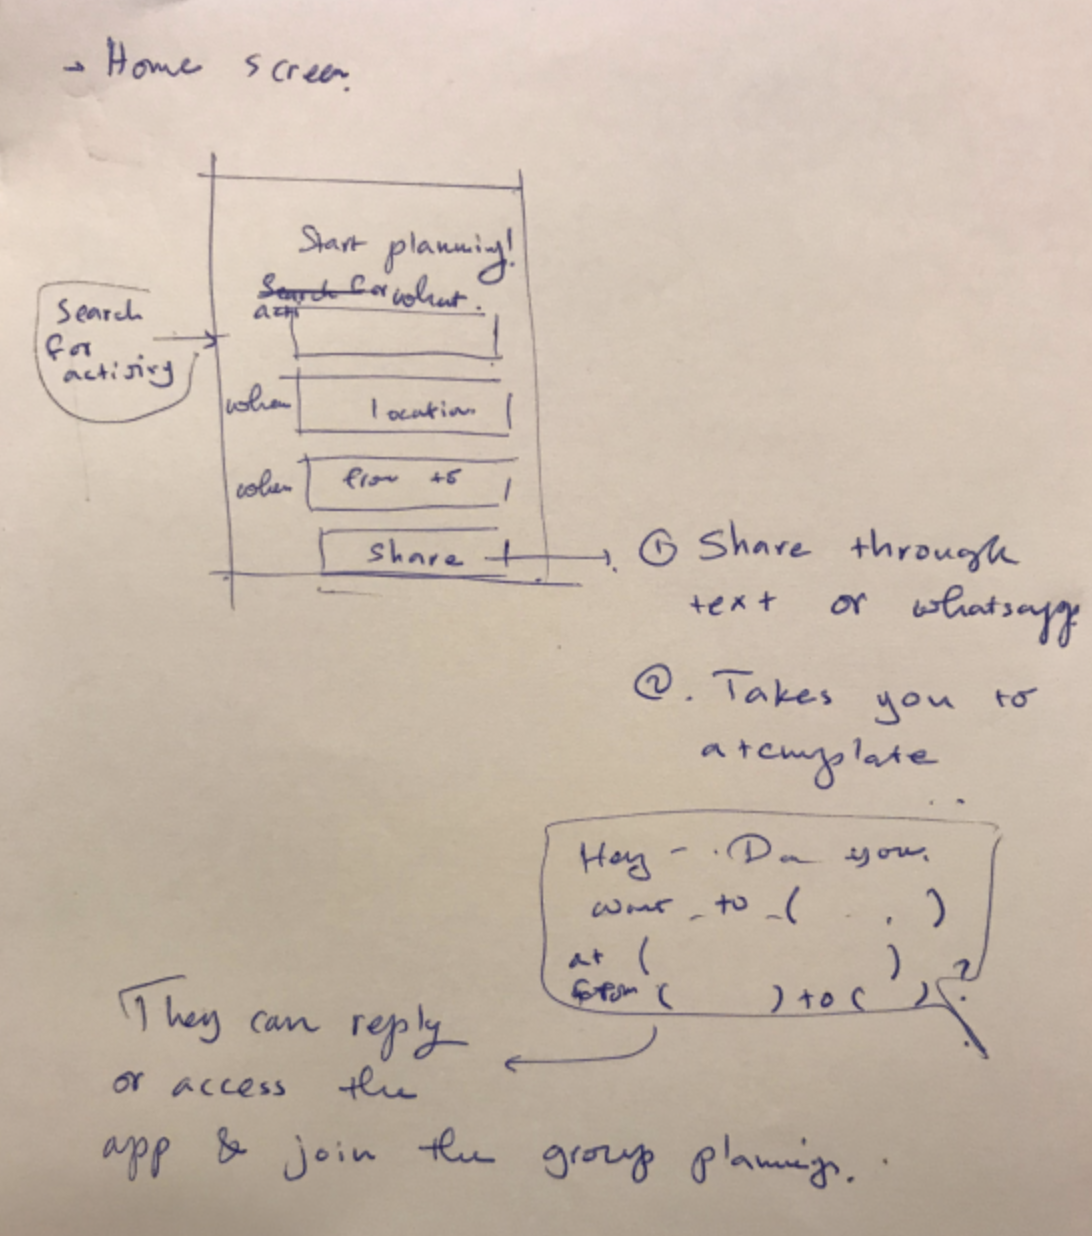 → Home screen.
Start planning!
Search for what.
acti
Search
for
activity
where location
when from to
Share
① Share through
text or whatsapp
②. Takes you to
a template
Hey - . Do you
want to ( . . )
at ( )
from ( ) to ( ) ?
They can reply
or access the
app & join the
group planning.